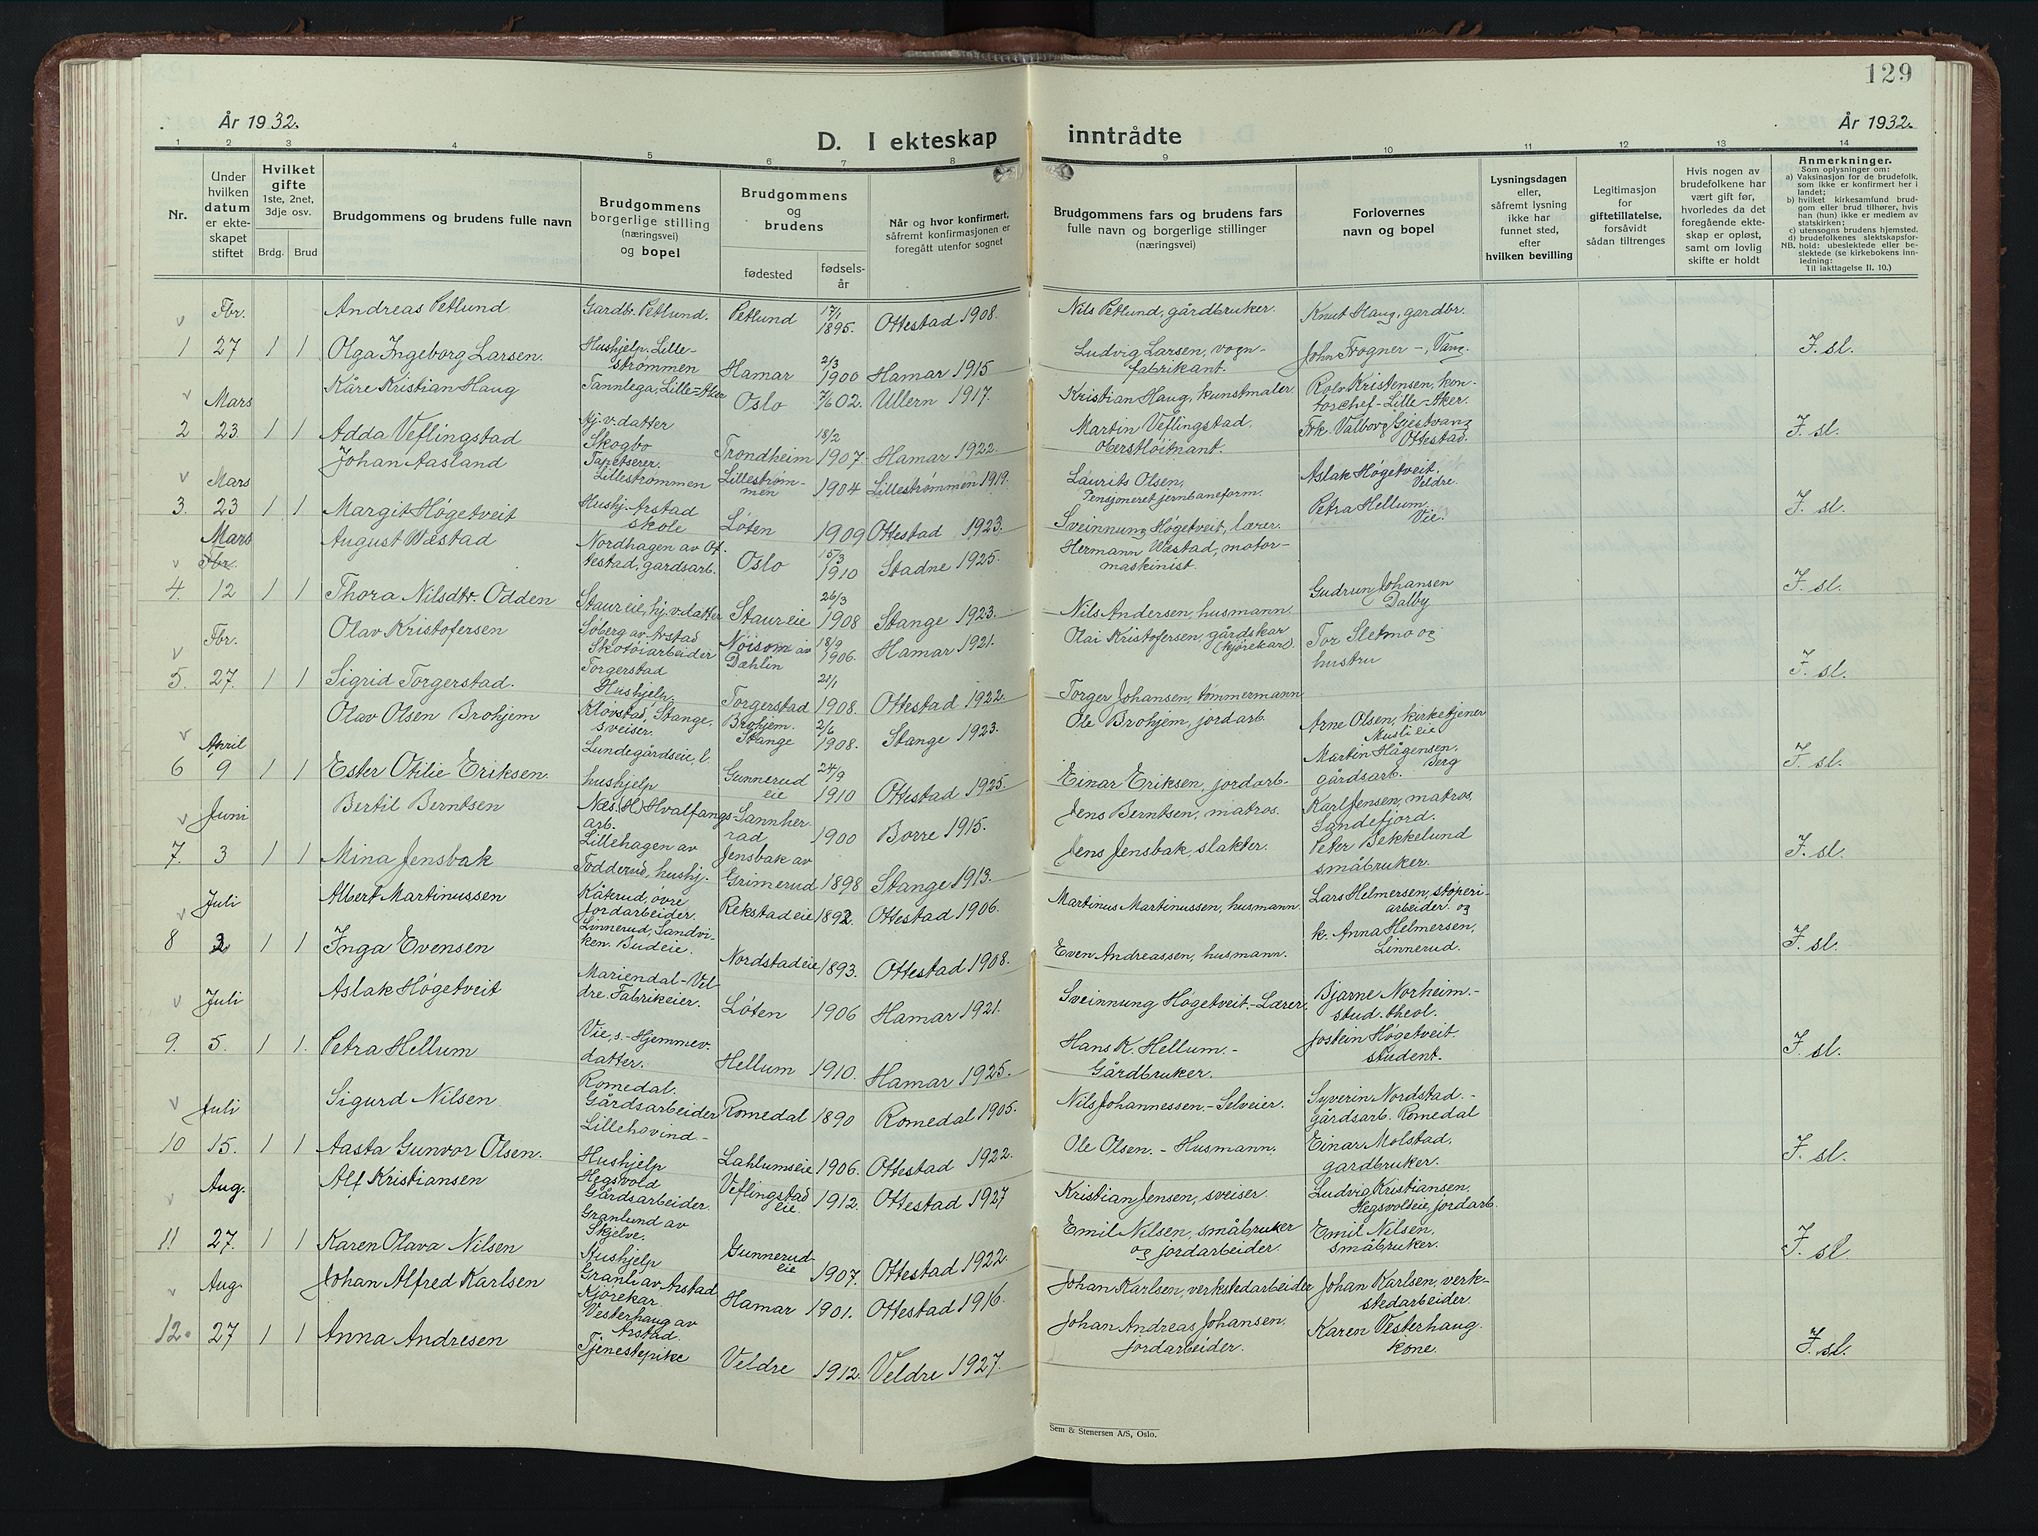 129
År 1932.
År 1932.
D. I ekteskap inntrådte
1 2 3 4 5 6 7 8 9 10 11 12 13 14
Nr.
Under hvilken datum er ekteskapet stiftet
Hvilket gifte 1ste, 2net, 3dje osv.
Brdg. Brud
Brudgommens og brudens fulle navn
Brudgommens borgerlige stilling (næringsvei) og bopel
Brudgommens og brudens
fødested
fødselsår
Når og hvor konfirmert, såfremt konfirmasjonen er foregått utenfor sognet
Brudgommens fars og brudens fars fulle navn og borgerlige stillinger (næringsvei)
Forlovernes navn og bopel
Lysningsdagen eller, såfremt lysning ikke har funnet sted, efter hvilken bevilling
Legitimasjon for giftetillatelse, forsåvidt sådan tiltrenges
Hvis nogen av brudefolkene har vært gift før, hvorledes da det foregående ekteskap er opløst, samt om lovlig skifte er holdt
Anmerkninger.
Som oplysninger om:
a) Vaksinasjon for de brudefolk, som ikke er konfirmert her i landet;
b) hvilket kirkesamfund brudgom eller brud tilhører, hvis han (hun) ikke er medlem av statskirken;
c) utensogns brudens hjemsted.
d) brudefolkenes slektskapsforhold: ubeslektede eller beslektede (se kirkebokens innledning:
NB.
Til iakttagelse II. 10.)
Fbr. Andreas Petlund Gardbr. Petlund. Petlund 17/1 1895. Ottestad 1908. Nils Petlund, gårdbruker Knut Haug, gardbr.
1 27 1 1 Olga Ingeborg Larsen. Hushjelp. Lillestrømmen Hamar 2/3 1900 Hamar 1915 Ludvig Larsen, vognfabrikant. John Frogner -, Vang. F. sl.
Mars Kåre Kristian Haug Tannlega, Lille-Aker Oslo 7/6 02. Ullern 1917. Kristian Haug, kunstmaler Rolv Kristensen, kontorchef - Lille-Aker.
2 23. 1 1 Adda Veflingstad Hj. v. datter Skogbo Trondheim 18/2 1907. Hamar 1922. Martin Veflingstad. oberstløitnant. Frk. Valborg Gjestvang Ottestad. F. sl.
Mars Johan Aasland Tapetserer. Lillestrømmen Lillestrømmen 1904 Lillestrømmen 1919. Laurits Olsen, Pensjoneret jernbaneform. Aslak Høgetveit. Veldre.
3. 23 1 1 Margit Høgetveit Hushj. Arstad skole Løten 1909 Ottestad 1923. Sveinnung Høgetveit, lærer. Petra Hellum, Vie. F. sl.
Mars Fbr. August Wæstad Nordhagen av Ottestad, gardsarb. Oslo 15/3 1910 Stadne 1925. Hermann Wæstad, motormaskinist.
4. 12 1 1 Thora Nilsdtr. Odden Staureie, hj. v. datter Staureie 26/3 1908 Stange 1923. Nils Andersen, husmann. Gudrun Johansen Dalby F. sl.
Fbr. Olav Kristofersen Sjøberg av Arstad Skotøiarbeider Nøisom av Dæhlin 18/9 1906. Hamar 1921. Olai Kristofersen, gårdskar (kjørekar). Tor Sletmo og hustru
5. 27. 1 1 Sigrid Torgerstad. Torgerstad Hushjelp, Torgerstad 21/1 1908. Ottestad 1922. Torger Johansen, tømmermann F. sl.
April Olav Olsen Brohjem Kløvstad, Stange, sveiser. Brohjem. Stange 2/6 1908. Stange 1923. Ole Brohjem, jordarb. Arne Olsen, kirketjener Muslieie
6 9 1 1 Ester Otilie Eriksen. Lundegårdseie, l. hushjelp Gunnerud eie 24/9 1910 Ottestad 1925. Einar Eriksen, jordarb. Martin Hågensen, Berg gårdsarb. F. sl.
Juni Bertil Berntsen Næs. (H) Hvalfangsarb. Sannherrad, 1900 Borre 1915. Jens Berntsen, matros. Karl Jensen, matros, Sandefjord.
7. 3 1 1 Mina Jensbak Lillehagen av Todderud, hushj. Jensbak av Grimerud 1898 Stange 1913. Jens Jensbak, slakter. Peter Bekkelund småbruker. F. sl.
Juli Albert Martinussen Kåterud, øvre Jordarbeider. Rekstadeie 1892 Ottestad 1906. Martinus Martinussen, husmann Lars Helmersen, støperiarbeider. og
8 2 1 1 Inga Evensen Linnerud, Sandviken. Budeie. Nordstadeie 1893. Ottestad 1908. Even Andreassen, husmann. k. Anna Helmersen, Linnerud. F. sl.
Juli Aslak Høgetveit Mariendal - Veldre. Fabrikeier. Løten 1906 Hamar 1921. Sveinnung Høgetveit. - Lærer, Bjarne Norheim. - stud. theol.
9. 5. 1 1. Petra Hellum Vie, s. - Hjemmev. datter. Hellum 1910. Hamar 1925. Hans K. Hellum. - Gårdbruker. Jostein Høgetveit. student. F. sl.
Juli Sigurd Nilsen. Romedal. Gårdsarbeider Romedal 1890 Romedal 1905. Nils Johannessen. - Selveier. Syverin Nordstad. - gårdsarb. Romedal
10 15. 1 1 Aasta Gunvor Olsen. Lillehovind - Hushjelp Lahlumseie 1906. Ottestad 1922. Ole Olsen. - Husmann. Einar Molstad, gardbruker. F. sl.
Aug. Alf Kristiansen Hegsvold Gårdsarbeider. Veflingstad eie. 1912. Ottestad 1927 Kristian Jensen, sveiser. Ludvig Kristiansen, Hegsvoldeie, jordarb.
11 27. 1 1 Karen Olava Nilsen Granlund av Skjelve. Hushjelp Gunnerudeie 1907. Ottestad 1922 Emil Nilsen, småbruker og jordarbeider. Emil Nilsen, småbruker. F. sl.
Aug. Johan Alfred Karlsen Granli av Arstad Kjørekar. Hamar 1901. Ottestad 1916. Johan Karlsen, verkstedarbeider Johan Karlsen, verkstedarbeider.
12. 27 1 1 Anna Andresen Vesterhaug av Arstad. Tjenestepike Veldre 1912. Veldre 1927. Johan Andreas Johansen, jordarbeider. Karen Vesterhaug. kone. F. sl.
Sem & Stenersen A/S, Oslo.